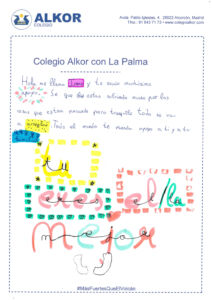 ALKOR
COLEGIO
Avda. Pablo Iglesias, 4. 28922 Alcorcón, Madrid
Tfno.: 91 643 71 73 • www.colegioalkor.com
Colegio Alkor con La Palma
Hola me llamo y te envio muchísimo
apoyo. Se que estas sufriendo mucho por las
cosas que estan pasando pero tranquilo Todo se va
a arreglar Todo el mundo te manda apoyo a ti y a tu
tu
eres ella
mejor
#MásFuertesQueElVolcán